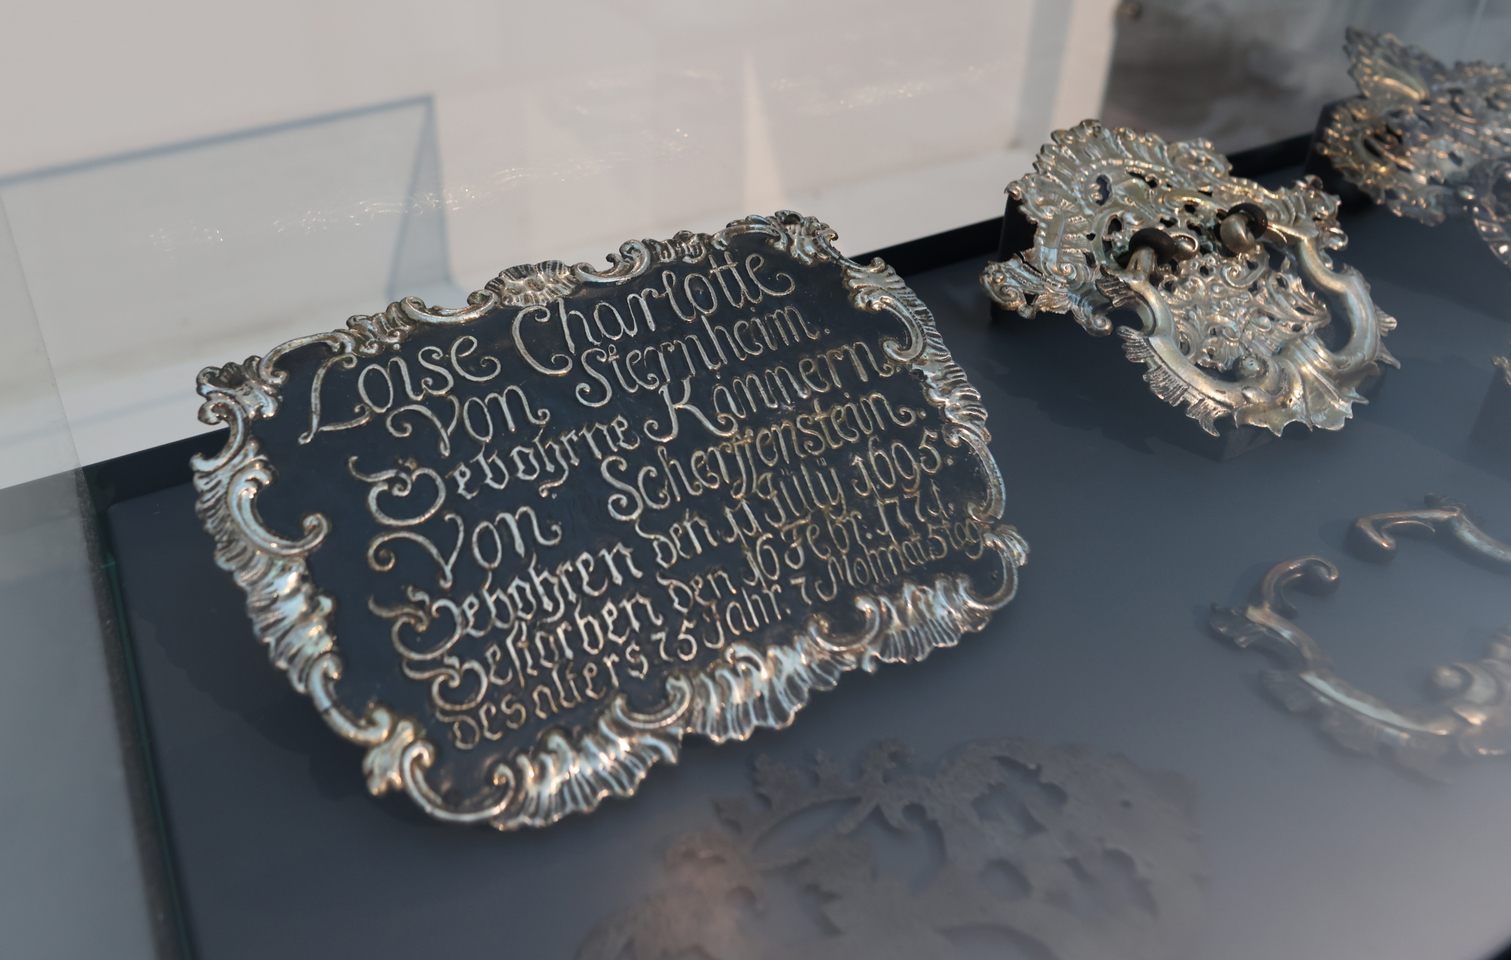 Loise Charlotte
Von Sternheim.
Gebohrne Kämmern
Von Scherffenstein.
Gebohren den 11 Jülÿ 1695.
Gestorben den 16 Febr: 1771.
Des alters 75 Jahr. 7 Mohnats tag